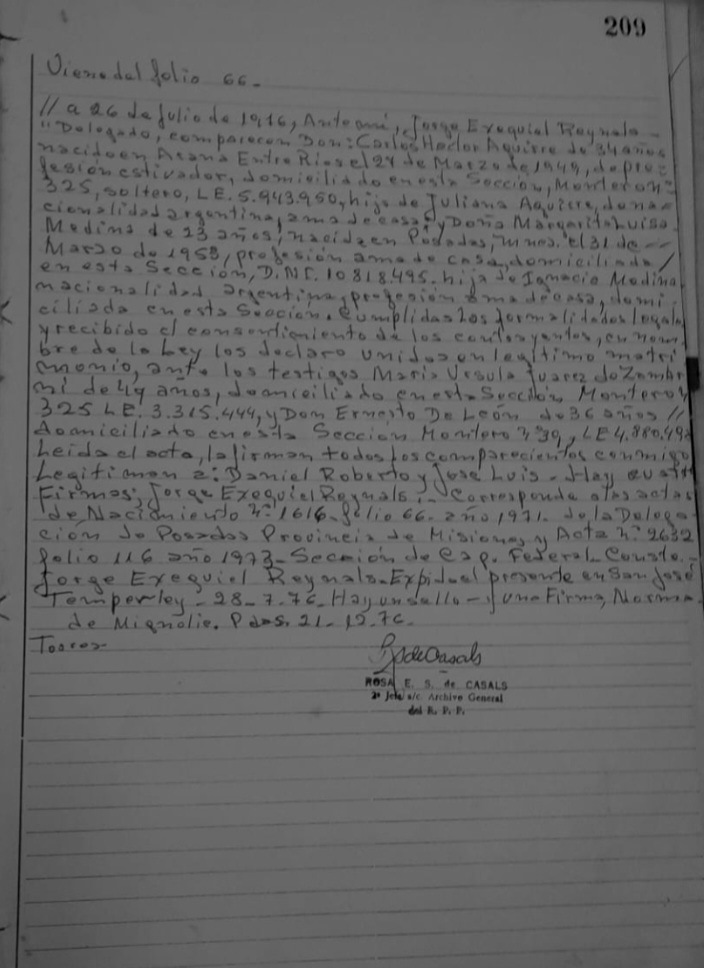 209
Viene del folio 66.-
// a 26 de Julio de 1976, Ante mí, Jorge Exequiel Reynals -
"Delegado, comparecen Don: Carlos Hector Aguirre de 34 años
nacido en Entre Rios el 24 de Marzo de 1949, de pro=
fesión estivador, domiciliado en esta Sección, Montero nº
325, soltero, L.E. 5.943.950, hijo de Juliana Aguirre, de na=
cionalidad argentina, ama de casa; y Doña Margarita Luisa
Medina de 23 años, nacida en Posadas, Mnes. el 31 de --
Marzo de 1953, profesión ama de casa, domiciliada /
en esta Sección, D.N.I. 10.818.495. hija de Ignacia Medina
nacionalidad argentina, profesión ama de casa, domi
ciliada en esta Sección. Cumplidas las formalidades legales
y recibido el consentimiento de los contrayentes, en nom
bre de la Ley los declaro unidos en legítimo matri
monio, ante los testigos Maria Ursula Juarez de
de 49 años, domiciliado en esta Sección Montero
325 L.E. 3.315.444, y Don Ernesto De León de 36 años //
domiciliado en esta Sección Montero 439, L.E 4.880.492
Leida el acta, la firman todos los comparecientes conmigo
Legitiman a: Daniel Roberto y José Luis - Hay cuatro
Firmas; Jorge Exequiel Reynals.- Corresponde a las actas
de Nacimiento nº 1616- folio 66- año 1971- de la Delega
ción de Posadas Provincia de Misiones y Acta nº 2632
folio 116 año 1973- Sección de Cap. Federal- Conste.-
Jorge Exequiel Reynals- Expido el presente en San José
Temperley - 28 - 7-76- Hay un sello - y una Firma, Norma
de Mignolie. Pdas. 21- 12-76-
Torres
ROSA E. S. de CASALS
2ª Jefa a/c. Archivo General
del R. P. P.